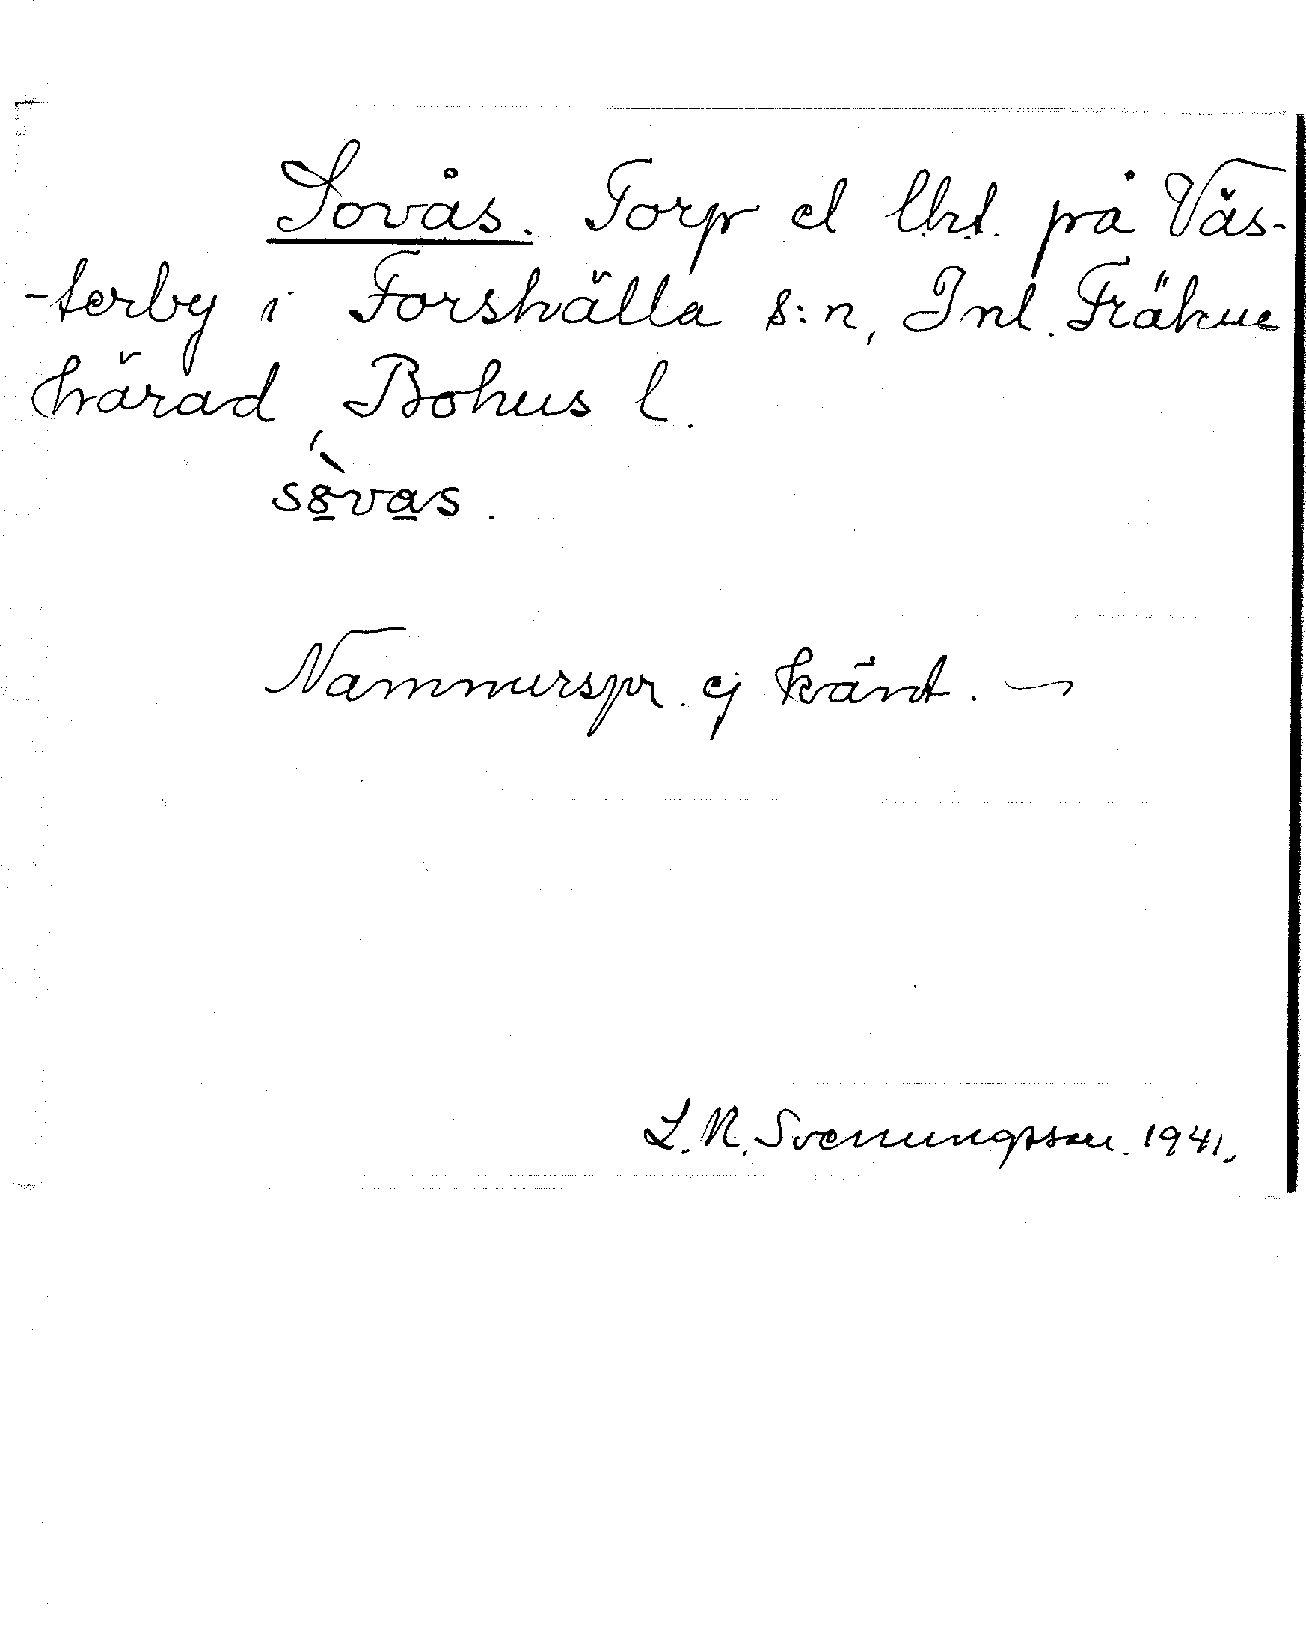 Sovås. Torp el lht. på Väs-
-terby i Forshälla s:n, Inl. Fräkne
härad, Bohus l.
sovas.
Namnurspr. ej känt. —
L. N. Svenungsson. 1941.